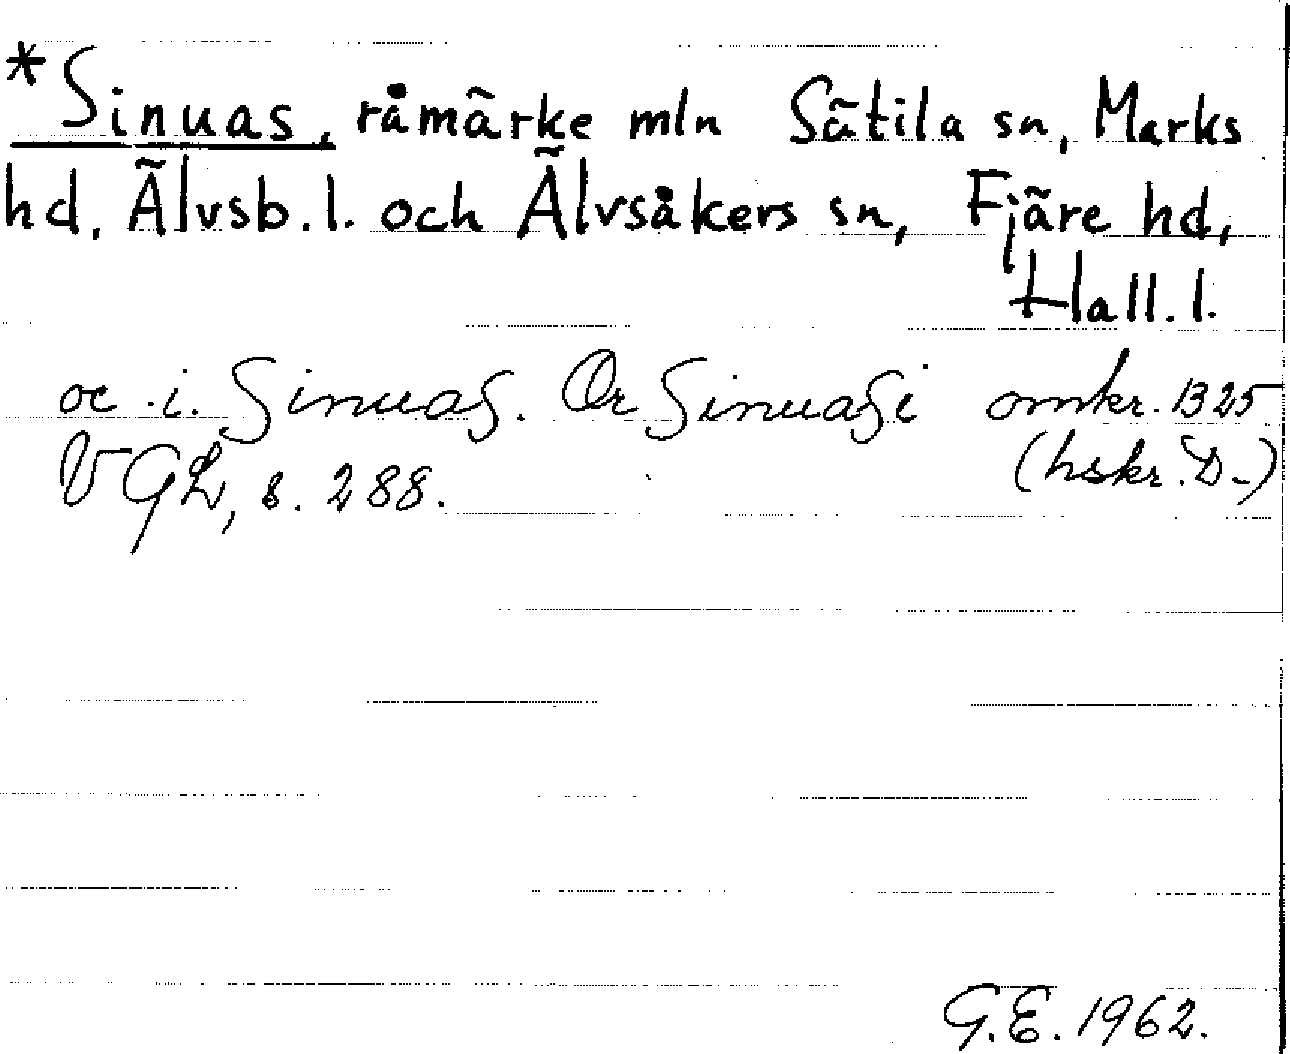 *Sinuas, råmärke mln Sätila sn, Marks
hd, Älvsb.l. och Älvsåkers sn, Fjäre hd,
Hall.l.
oc .i. Sinuas. Or Sinuasi omkr. 1325
VGL, s. 288. (hskr. D.)
G.E. 1962.